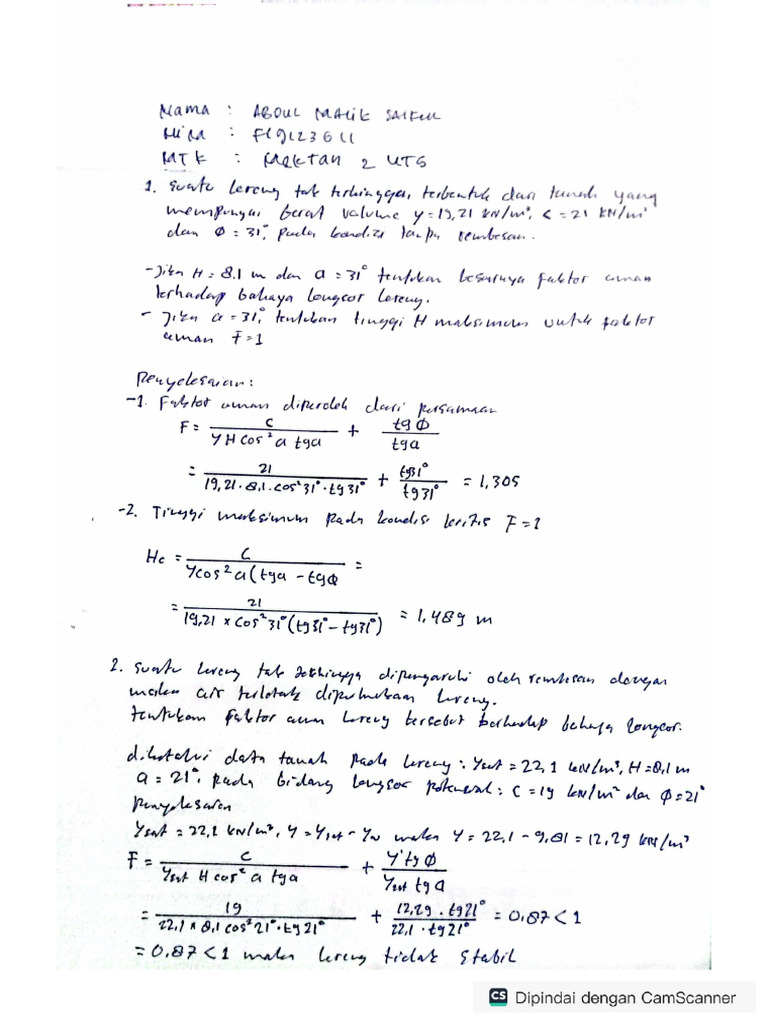 Nama : ABDUL MALIK SAIFUL
Nim : F1G1236
MTK : MEKTAN 2 UTS
1. Suatu lereng tak terhingga, terbentuk dari tanah yang
mempunyai berat volume γ = 19,21 kN/m³, c = 21 kN/m²
dan Ø = 31°, pada kondisi tanpa rembesan.
- Jika H = 8.1 m dan a = 31° tentukan besarnya faktor aman
terhadap bahaya longsor lereng.
- Jika a = 31°, tentukan tinggi H maksimum untuk faktor
aman F = 1
Penyelesaian :
-1. Faktor aman diperoleh dari persamaan
F = c / γ H cos² a tg a + tg Ø / tg a
= 21 / 19,21 . 8,1 . cos² 31° . tg 31° + tg 31° / tg 31° = 1,305
-2. Tinggi maksimum pada kondisi kritis F = 1
Hc = c / γ cos² a (tg a - tg Ø =
= 21 / 19,21 x cos² 31° (tg 31° - tg 31°) = 1,489 m
2. Suatu lereng tak terhingga dipengaruhi oleh rembesan dengan
muka air terletak dipermukaan lereng.
tentukan faktor aman lereng tersebut terhadap bahaya longsor.
diketahui data tanah pada lereng : γsat = 22,1 kN/m³, H = 8,1 m
a = 21°, pada bidang longsor potensial : c = 19 kN/m² dan Ø = 21°
Penyelesaian
γsat = 22,1 kN/m³, γ = γsat - γw maka γ = 22,1 - 9,81 = 12,29 kN/m³
F = c / γsat H cos² a tg a + γ' tg Ø / γsat tg a
= 19 / 22,1 x 8,1 cos² 21° . tg 21° + 12,29 . tg 21° / 22,1 . tg 21° = 0,87 < 1
= 0,87 < 1 maka lereng tidak stabil
CS Dipindai dengan CamScanner